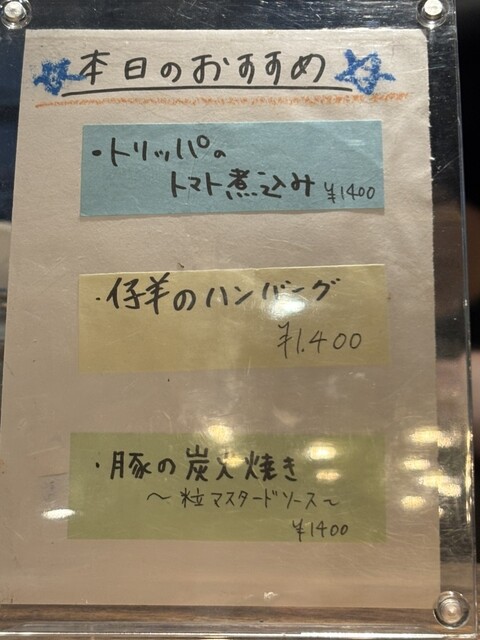 本日のおすすめ
・トリッパの
トマト煮込み ¥1400
・仔羊のハンバーグ
¥1.400
・豚の炭火焼き
～粒マスタードソース～
¥1400